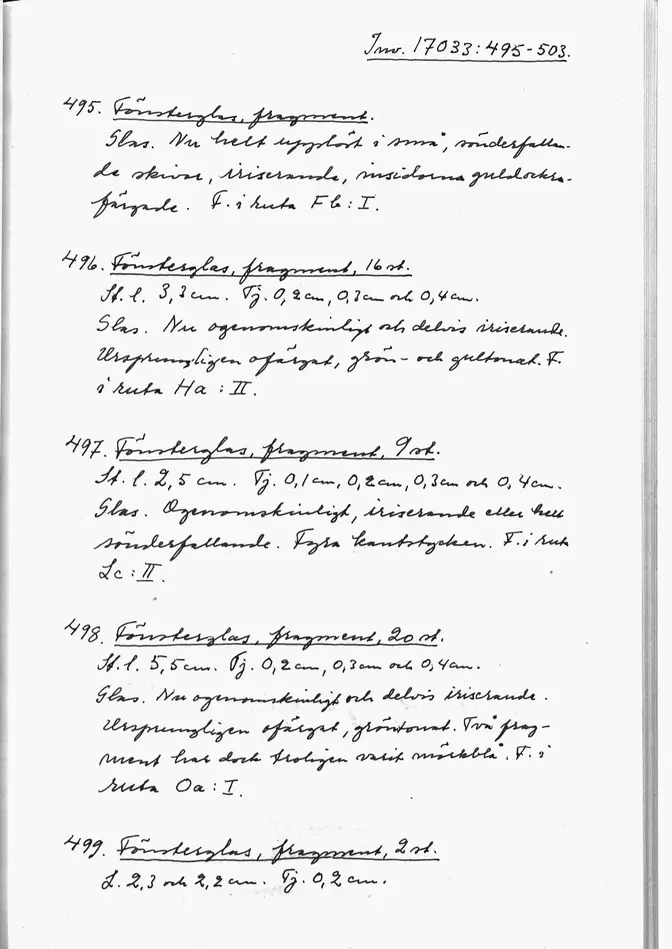 Inv. 17033:495-503.
495. Fönsterglas, fragment.
Glas. Nu helt upplöst i små, sönderfallan-
de skivor, iriserande, insidorna guldockra-
färgade. F. i ruta Fb:I.
496. Fönsterglas, fragment, 16 st.
St. l. 3,3 cm. Tj. 0,2 cm, 0,3 cm och 0,4 cm.
Glas. Nu ogenomskinligt och delvis iriserande.
Ursprungligen ofärgat, grön- och gultonat. F.
i ruta Ha : II.
497. Fönsterglas, fragment, 9 st.
St. l. 2,5 cm. Tj. 0,1 cm, 0,2 cm, 0,3 cm och 0,4 cm.
Glas. Ogenomskinligt, iriserande eller helt
sönderfallande. Fyra kantstycken. F. i ruta
Lc : II.
498. Fönsterglas, fragment, 20 st.
St. l. 5,5 cm. Tj. 0,2 cm, 0,3 cm och 0,4 cm.
Glas. Nu ogenomskinligt och delvis iriserande.
Ursprungligen ofärgat, gröntonat. Två frag-
ment har dock troligen varit mörkblå. F. i
ruta Oa : I.
499. Fönsterglas, fragment, 2 st.
L. 2,3 och 2,2 cm. Tj. 0,2 cm.